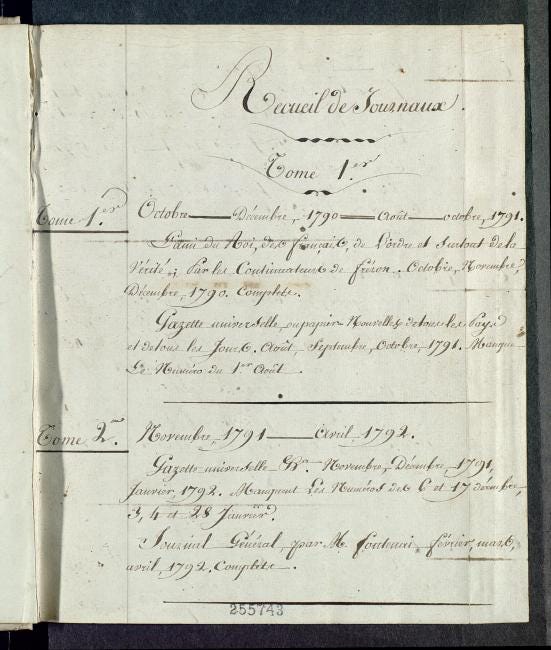 Recueil de Journaux.
Tome 1.er
Tome 1.er
Octobre — Décembre, 1790 — Août — octobre, 1791.
L'ami du Roi, des français, de l'ordre et surtout de la
Vérité; Par les Continuateurs de fréron. Octobre, Novembre,
Décembre, 1790. Complets.
Gazette universelle, ou papier Nouvelles de tous les Pays
et de tous les Jours. Août, Septembre, Octobre, 1791. Manque
Le Numéro du 1er Août.
Tome 2.me
Novembre, 1791 — Avril, 1792.
Gazette universelle Novembre, Décembre, 1791,
Janvier, 1792. Manquent Les Numéros des 6 et 17 décembre,
3, 4 et 28 Janvier.
Journal Général, par M. fontenai, février, mars,
avril, 1792. Complets.
255743